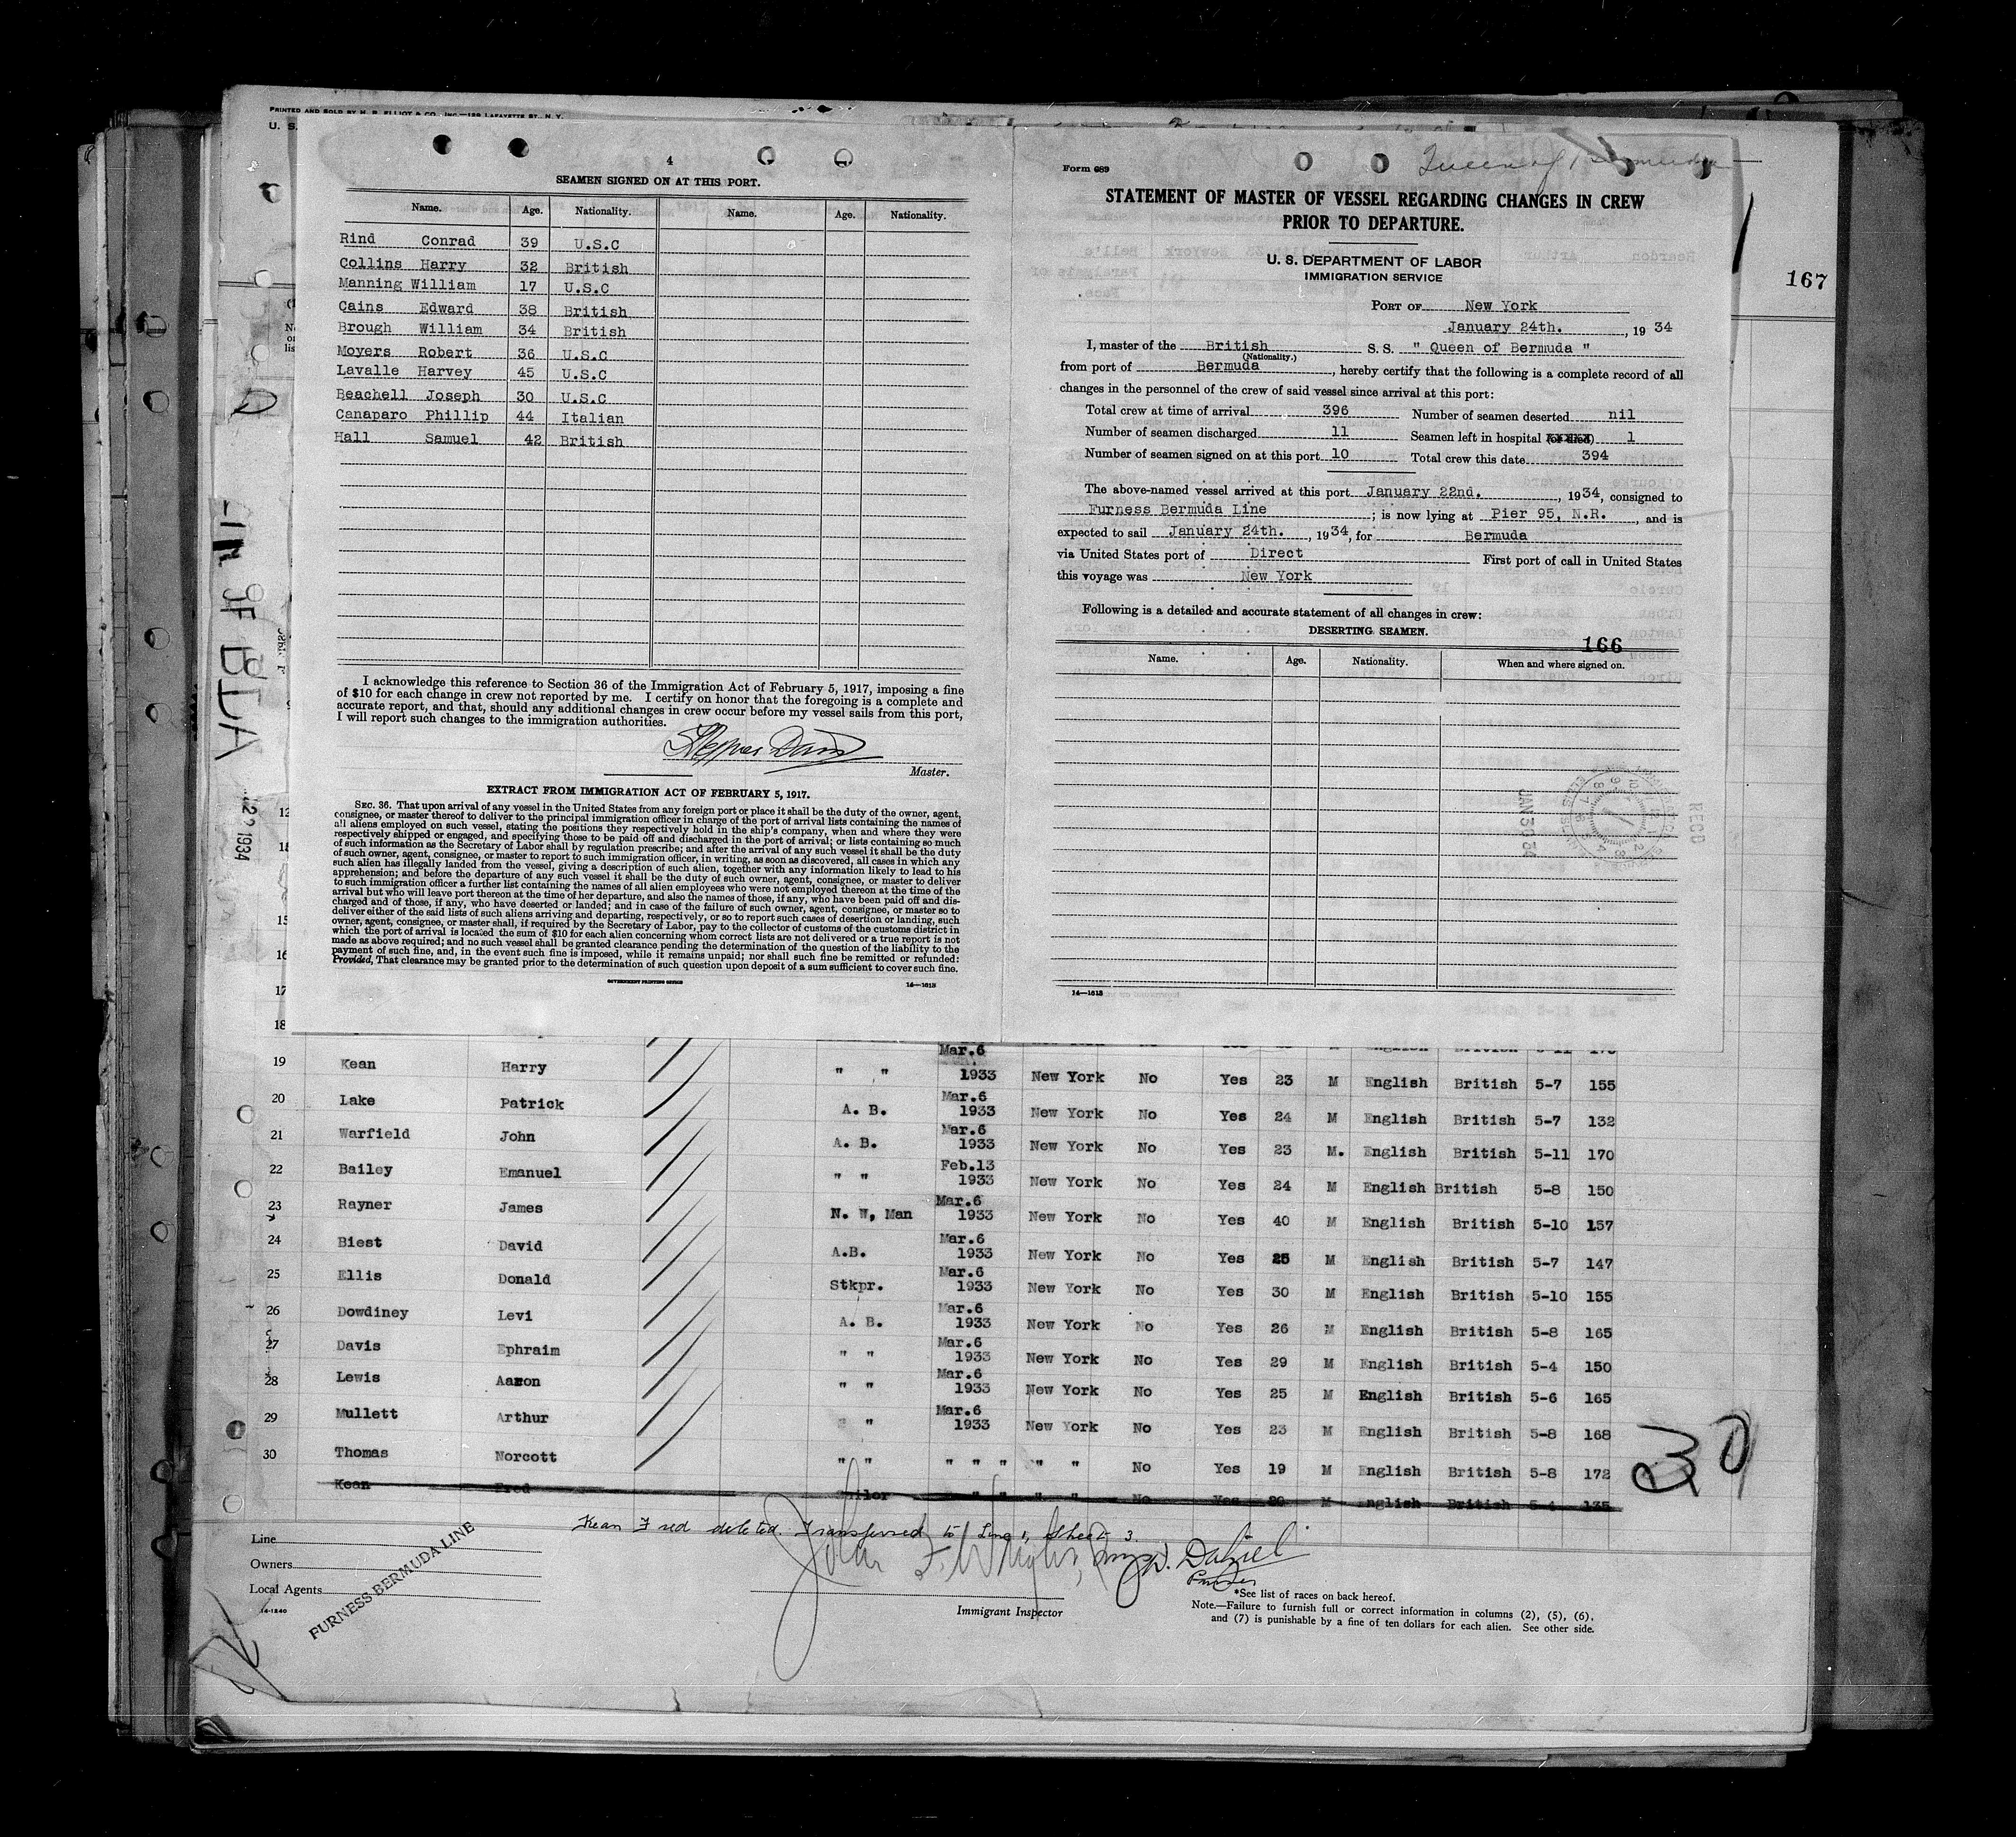 PRINTED AND SOLD BY H. R. ELLIOT & CO., INC.—199 LAFAYETTE ST., N. Y.
U. S.
4
SEAMEN SIGNED ON AT THIS PORT.
Name. Age. Nationality. Name. Age. Nationality.
Rind Conrad 39 U.S.C
Collins Harry 32 British
Manning William 17 U.S.C
Cains Edward 38 British
Brough William 34 British
Moyers Robert 36 U.S.C
Lavalle Harvey 45 U.S.C
Beachell Joseph 30 U.S.C
Canaparo Phillip 44 Italian
Hall Samuel 42 British
I acknowledge this reference to Section 36 of the Immigration Act of February 5, 1917, imposing a fine
of $10 for each change in crew not reported by me. I certify on honor that the foregoing is a complete and
accurate report, and that, should any additional changes in crew occur before my vessel sails from this port,
I will report such changes to the immigration authorities.
Master.
EXTRACT FROM IMMIGRATION ACT OF FEBRUARY 5, 1917.
SEC. 36. That upon arrival of any vessel in the United States from any foreign port or place it shall be the duty of the owner, agent,
consignee, or master thereof to deliver to the principal immigration officer in charge of the port of arrival lists containing the names of
all aliens employed on such vessel, stating the positions they respectively hold in the ship's company, when and where they were
respectively shipped or engaged, and specifying those to be paid off and discharged in the port of arrival; or lists containing so much
of such information as the Secretary of Labor shall by regulation prescribe; and after the arrival of any such vessel it shall be the duty
of such owner, agent, consignee, or master to report to such immigration officer, in writing, as soon as discovered, all cases in which any
such alien has illegally landed from the vessel, giving a description of such alien, together with any information likely to lead to his
apprehension; and before the departure of any such vessel it shall be the duty of such owner, agent, consignee, or master to deliver
to such immigration officer a further list containing the names of all alien employees who were not employed thereon at the time of the
arrival but who will leave port thereon at the time of her departure, and also the names of those, if any, who have been paid off and dis-
charged and of those, if any, who have deserted or landed; and in case of the failure of such owner, agent, consignee, or master so to
deliver either of the said lists of such aliens arriving and departing, respectively, or so to report such cases of desertion or landing, such
owner, agent, consignee, or master shall, if required by the Secretary of Labor, pay to the collector of customs of the customs district in
which the port of arrival is located the sum of $10 for each alien concerning whom correct lists are not delivered or a true report is not
made as above required; and no such vessel shall be granted clearance pending the determination of the question of the liability to the
payment of such fine, and, in the event such fine is imposed, while it remains unpaid; nor shall such fine be remitted or refunded:
Provided, That clearance may be granted prior to the determination of such question upon deposit of a sum sufficient to cover such fine.
GOVERNMENT PRINTING OFFICE 14—1613
Form 689
Queen of Bermuda
STATEMENT OF MASTER OF VESSEL REGARDING CHANGES IN CREW
PRIOR TO DEPARTURE.
U. S. DEPARTMENT OF LABOR
IMMIGRATION SERVICE
PORT OF New York
January 24th. , 19 34
I, master of the British S. S. " Queen of Bermuda "
(Nationality.)
from port of Bermuda , hereby certify that the following is a complete record of all
changes in the personnel of the crew of said vessel since arrival at this port:
Total crew at time of arrival 396 Number of seamen deserted nil
Number of seamen discharged 11 Seamen left in hospital (or died) 1
Number of seamen signed on at this port 10 Total crew this date 394
The above-named vessel arrived at this port January 22nd. , 1934, consigned to
Furness Bermuda Line ; is now lying at Pier 95, N.R. , and is
expected to sail January 24th. , 1934, for Bermuda
via United States port of Direct First port of call in United States
this voyage was New York
Following is a detailed and accurate statement of all changes in crew:
DESERTING SEAMEN.
166
Name. Age. Nationality. When and where signed on.
RECD
JAN 30 34
14—1613
167
22 1934
12
15
16
17
18
19 Kean Harry " " Mar.6 1933 New York No Yes 23 M English British 5-7 155
20 Lake Patrick A. B. Mar.6 1933 New York No Yes 24 M English British 5-7 132
21 Warfield John A. B. Mar.6 1933 New York No Yes 23 M. English British 5-11 170
22 Bailey Emanuel " " Feb.13 1933 New York No Yes 24 M English British 5-8 150
23 Rayner James N. W, Man Mar.6 1933 New York No Yes 40 M English British 5-10 157
24 Biest David A.B. Mar.6 1933 New York No Yes 25 M English British 5-7 147
25 Ellis Donald Stkpr. Mar.6 1933 New York No Yes 30 M English British 5-10 155
26 Dowdiney Levi A. B. Mar.6 1933 New York No Yes 26 M English British 5-8 165
27 Davis Ephraim " " Mar.6 1933 New York No Yes 29 M English British 5-4 150
28 Lewis Aaron " " Mar.6 1933 New York No Yes 25 M English British 5-6 165
29 Mullett Arthur " " Mar.6 1933 New York No Yes 23 M English British 5-8 168
30 Thomas Norcott " " " " " " " No Yes 19 M English British 5-8 172
Kean Fred Sailor " " " " No Yes 20 M English British 5-4 135
30
Kean Fred deleted. Transferred to Line 1, Sheet 3.
W. Dalziel
Purser
Line
Owners
Local Agents
FURNESS BERMUDA LINE
14-1240
Immigrant Inspector
*See list of races on back hereof.
Note.—Failure to furnish full or correct information in columns (2), (5), (6),
and (7) is punishable by a fine of ten dollars for each alien. See other side.